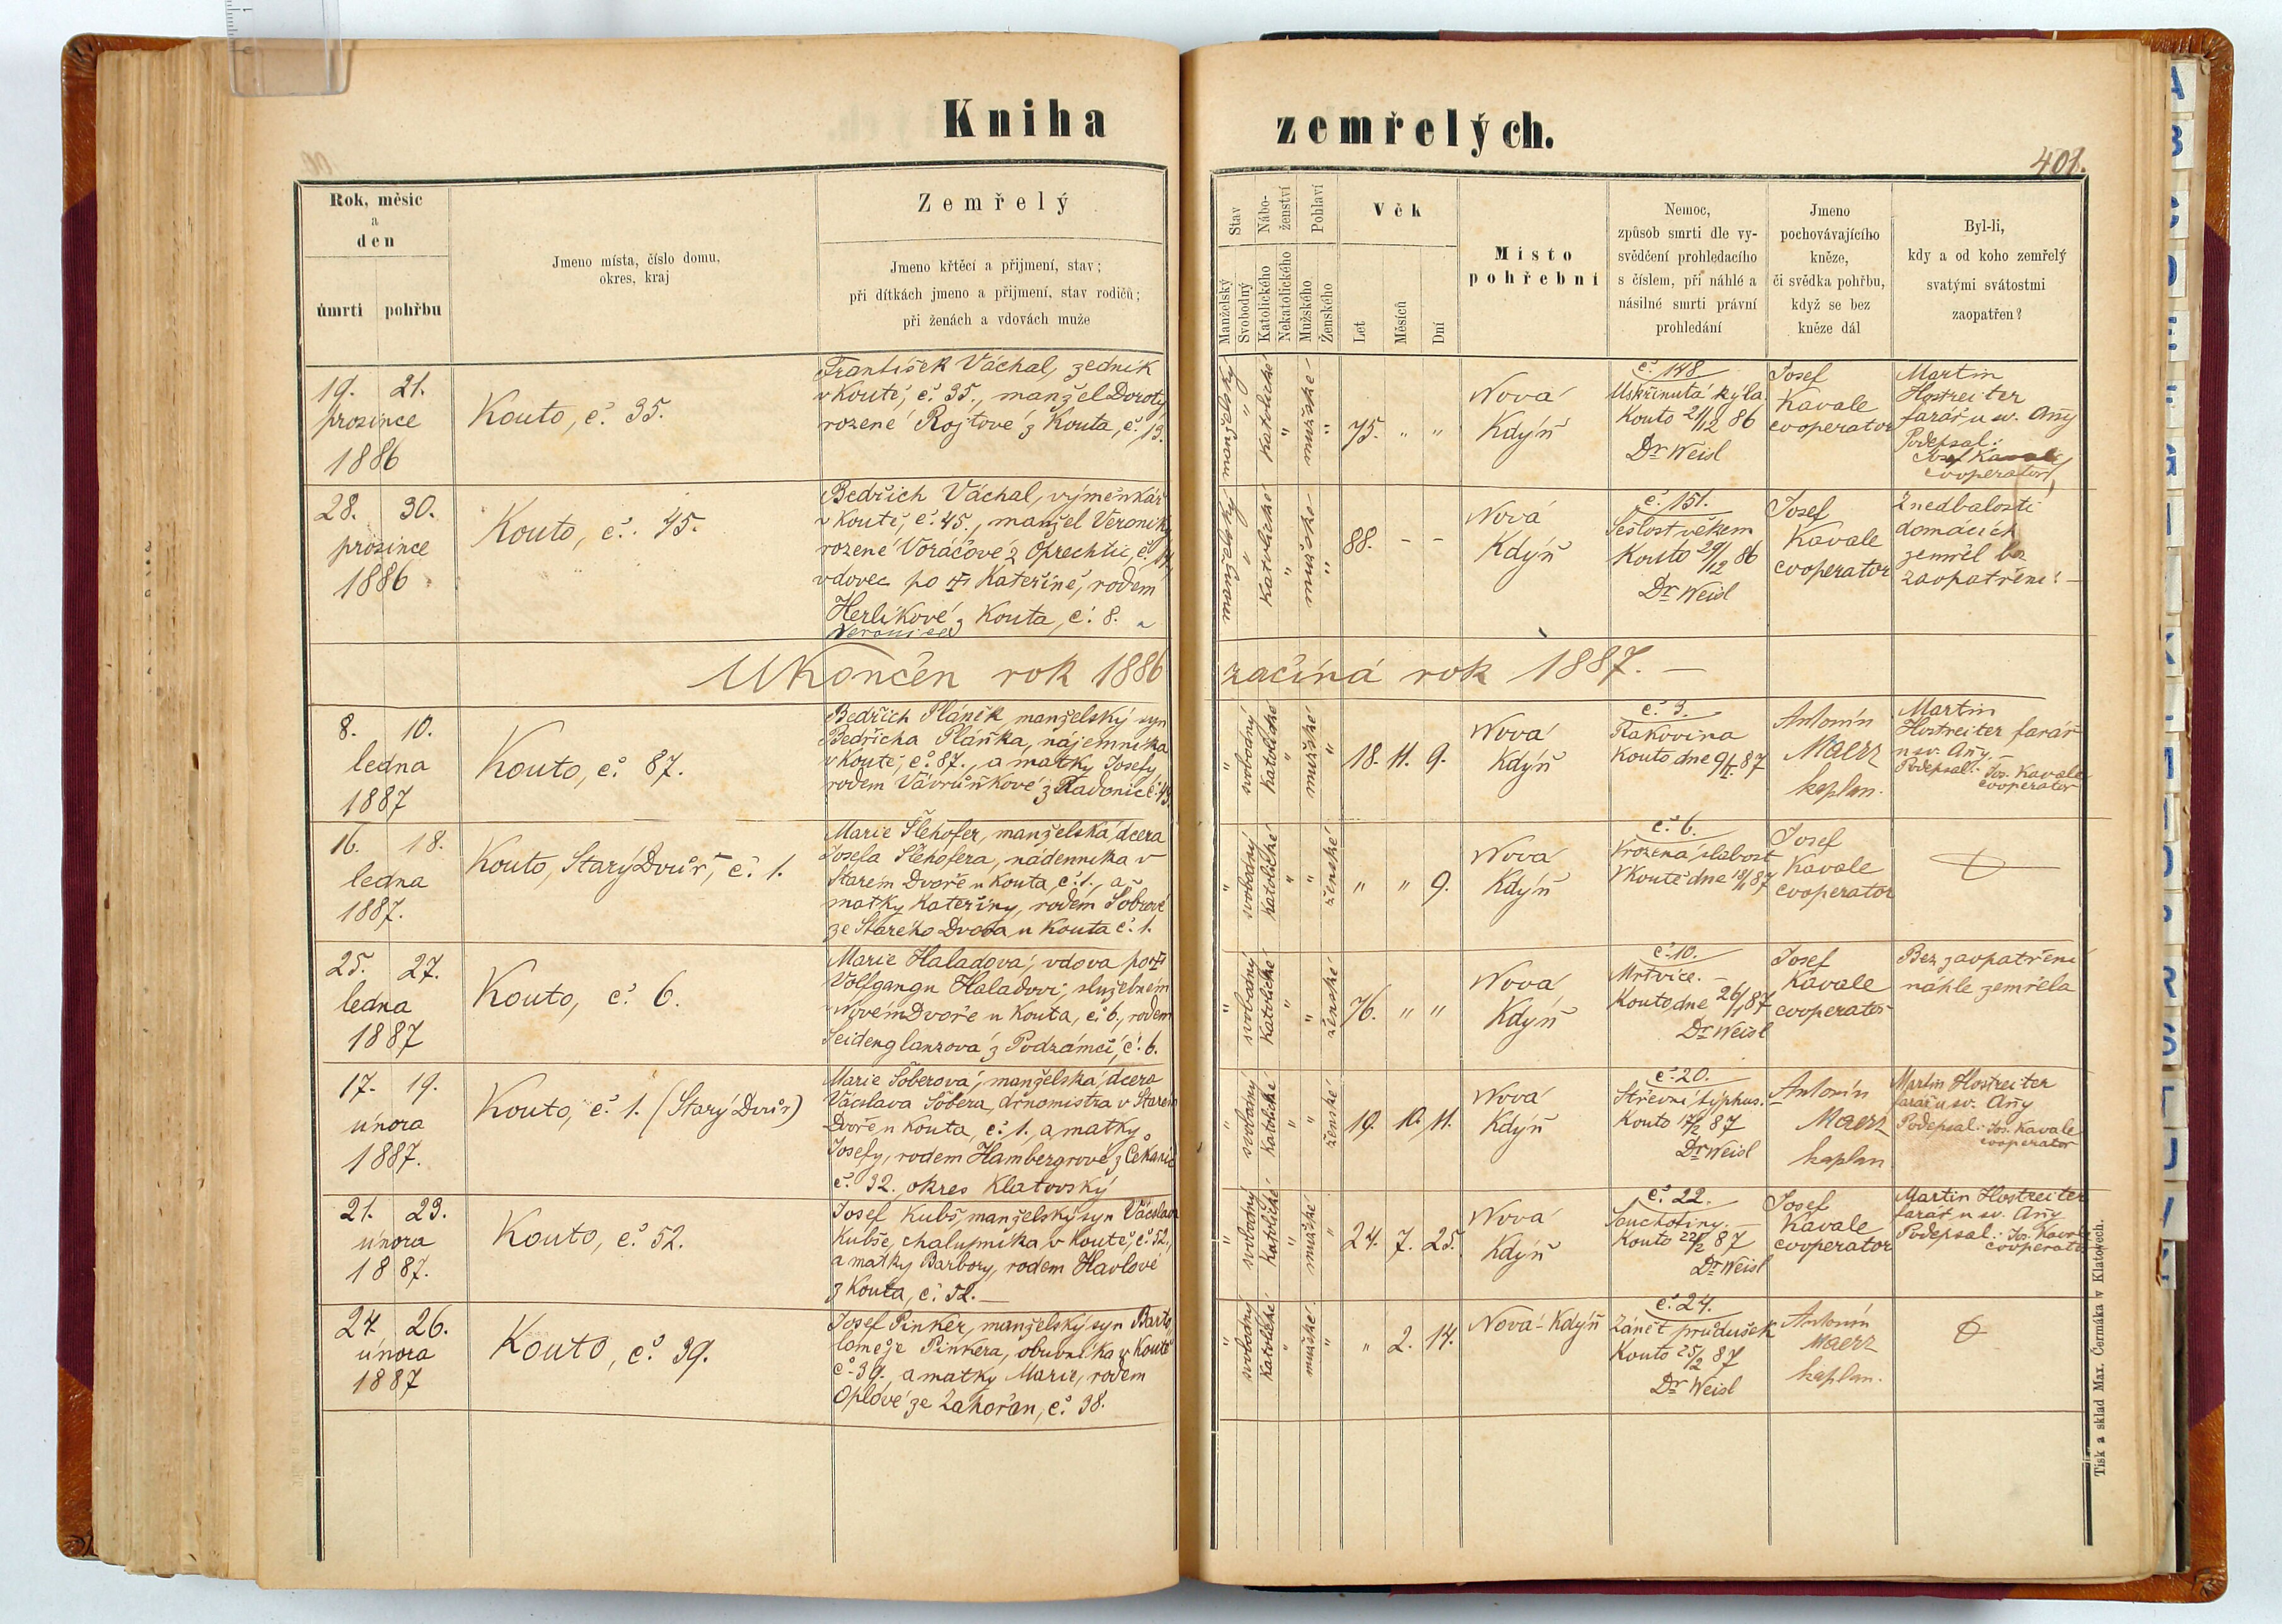 Kniha zemřelých.
401.
Rok, měsíc
a
den
úmrtí
pohřbu
Jmeno místa, číslo domu,
okres, kraj
Zemřelý
Jmeno křtěcí a přijmení, stav;
při dítkách jmeno a přijmení, stav rodičů;
při ženách a vdovách muže
Stav
Manželský
Svobodný
Nábo-
ženství
Katolického
Nekatolického
Pohlaví
Mužského
Ženského
Věk
Let
Měsíců
Dní
Místo
pohřební
Nemoc,
způsob smrti dle vy-
svědčení prohledacího
s číslem, při náhlé a
násilné smrti právní
prohledání
Jmeno
pochovávajícího
kněze,
či svědka pohřbu,
když se bez
kněze dál
Byl-li,
kdy a od koho zemřelý
svatými svátostmi
zaopatřen?
19. 21.
prosince
1886
Kouto, č. 35.
František Váchal, zedník
v Koutě, č. 35., manžel Doroty,
rozené Rojtové z Kouta, č. 13.
manželský "
katolické "
mužské "
75. " "
Nová
Kdýň
č. 148
Uskřinutá kýla.
Kouto 21/12 86
Dr Weisl
Josef
Kavale
cooperator
Martin
Hostreiter
farář u sv. Anny
Podepsal:
Josef Kavale
cooperator
28. 30.
prosince
1886
Kouto, č. 45.
Bedřich Váchal, výměnkář
v Koutě, č. 45., manžel Veroniky
rozené Voráčové z Oprechtic, č. 14,
vdovec po † Kateřině, rodem
Herlíkové z Kouta, č. 8.
Veronika
manželský "
katolické "
mužské "
88. - -
Nová
Kdýň
č. 151.
Sešlost věkem
Kouto 29/12 86
Dr Weisl
Josef
Kavale
cooperator
Z nedbalosti
domácích
zemřel bez
zaopatření. -
Ukončen rok 1886
začíná rok 1887. -
8. 10.
ledna
1887
Kouto, č. 87.
Bedřich Pláněk, manželský syn
Bedřicha Pláňka, nájemníka
v Koutě, č. 87., a matky Josefy
rodem Vávrůňkové z Radonic č. 49.
" svobodný
katolické "
mužské "
18. 11. 9.
Nová
Kdýň
č. 3.
Rakovina
Kouto dne 9/1. 87
Antonín
Maerz
kaplan.
Martin
Hostreiter farář
u sv. Anny
Podepsal: Jos. Kavale
cooperator
16. 18.
ledna
1887.
Kouto, Starý Dvůr, č. 1.
Marie Šlehofer, manželská dcera
Josefa Šlehofera, nádenníka v
Starém Dvoře u Kouta, č. 1., a
matky Kateřiny, rodem Šobrové
ze Starého Dvora u Kouta č. 1.
" svobodný
katolické "
" ženské
" " 9.
Nová
Kdýň
č. 6.
Vrozená slabost
V Koutě dne 18/1 87
Josef
Kavale
cooperator
25. 27.
ledna
1887
Kouto, č. 6.
Marie Haladová, vdova po †
Volfgangu Haladovi, služebném
v Novém Dvoře u Kouta, č. 6., rodem
Seidenglanzová z Podzámčí, č. 6.
" svobodný
katolické "
" ženské
76. " "
Nová
Kdýň
č. 10.
Mrtvice. -
Kouto dne 26/1 87
Dr Weisl
Josef
Kavale
cooperator
Bez zaopatření
náhle zemřela
17. 19.
února
1887.
Kouto, č. 1. (Starý Dvůr)
Marie Šoberová, manželská dcera
Václava Šobera, drnomistra v Starém
Dvoře u Kouta, č. 1., a matky
Josefy, rodem Hambergrové z Čekanic
č. 32. okres Klatovský
" svobodný
katolické "
" ženské
19. 10. 11.
Nová
Kdýň
č. 20.
Střevní týphus.
Kouto 17/2 87
Dr Weisl
Antonín
Maerz
kaplan
Martin Hostreiter
farář u sv. Anny
Podepsal: Jos. Kavale
cooperator
21. 23.
února
1887.
Kouto, č. 52.
Josef Kubš, manželský syn Václava
Kubše, chalupníka v Koutě, č. 52.,
a matky Barbory, rodem Havlové
z Kouta, č. 52. -
" svobodný
katolické "
mužské "
24. 7. 25.
Nová
Kdýň
č. 22.
Souchotiny. -
Kouto 22/2 87
Dr Weisl
Josef
Kavale
cooperator
Martin Hostreiter
farář u sv. Anny
Podepsal: Jos. Kavale
cooperator
24. 26.
února
1887
Kouto, č. 39.
Josef Pinker, manželský syn Barto-
loměje Pinkera, obuvníka v Koutě
č. 39., a matky Marie, rodem
Oplové ze Zahořan, č. 38.
" svobodný
katolické "
mužské "
" 2. 14.
Nová - Kdýň
č. 24.
Zánět průdušek
Kouto 25/2 87
Dr Weisl
Antonín
Maerz
kaplan.
Tisk a sklad Max. Čermáka v Klatovech.